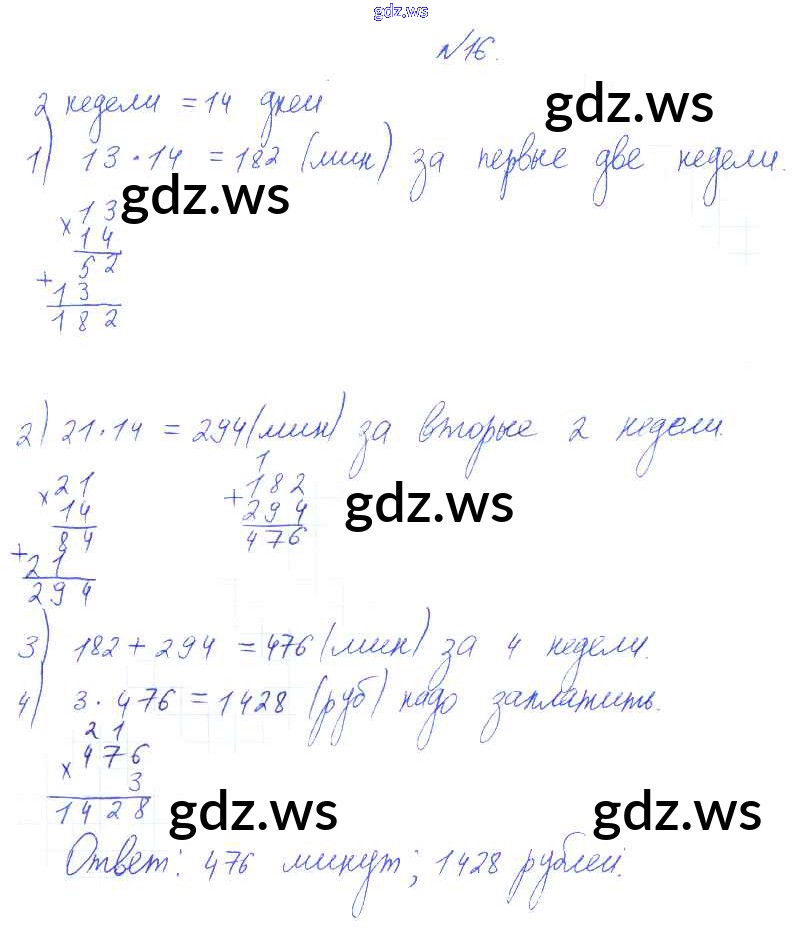 gdz.ws
№16.
2 недели = 14 дней
gdz.ws
1) 13·14 = 182 (мин) за первые две недели.
gdz.ws
× 13
14
52
+ 13
182
2) 21·14 = 294 (мин) за вторые 2 недели.
× 21
14
84
+ 21
294
1
+ 182
294
476
gdz.ws
3) 182 + 294 = 476 (мин) за 4 недели.
4) 3·476 = 1428 (руб) надо заплатить.
21
× 476
3
1428
gdz.ws
gdz.ws
Ответ: 476 минут; 1428 рублей.